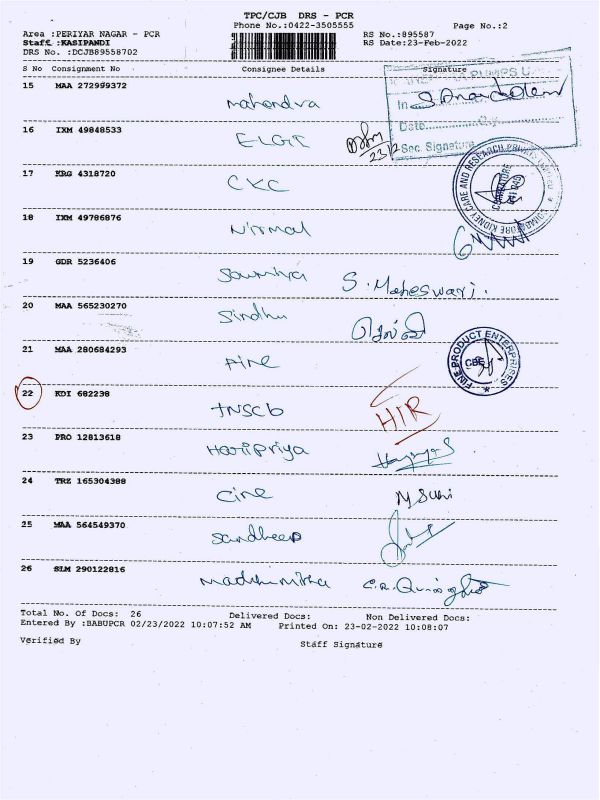 TPC/CJB DRS - PCR
Phone No.:0422-3505555 Page No.:2
Area :PERIYAR NAGAR - PCR RS No.:895587
Staff :KASIPANDI RS Date:23-Feb-2022
DRS No. :DCJB89558702
S No Consignment No Consignee Details Signature
15 MAA 272999372
Mahendra
16 IXM 49848533
ELGI 23/2
17 KRG 4318720
CKC
KIDNEY CARE AND RESEARCH PRIVATE LIMITED
COIMBATORE
18 IXM 49786876
Nirmal
19 GDR 5236406
Sowmiya S. Maheswari.
20 MAA 565230270
Sindhu செல்வி
21 MAA 280684293
Fine
FINE PRODUCT ENTERPRISES
CBE
22 KDI 682238
TNSCB HIR
23 PRO 12813618
Haripriya
24 TRZ 165304388
Cine M Suni
25 MAA 564549370
Sandheep
26 SLM 290122816
Madhumitha
Total No. Of Docs: 26 Delivered Docs: Non Delivered Docs:
Entered By :BABUPCR 02/23/2022 10:07:52 AM Printed On: 23-02-2022 10:08:07
Verified By Staff Signature